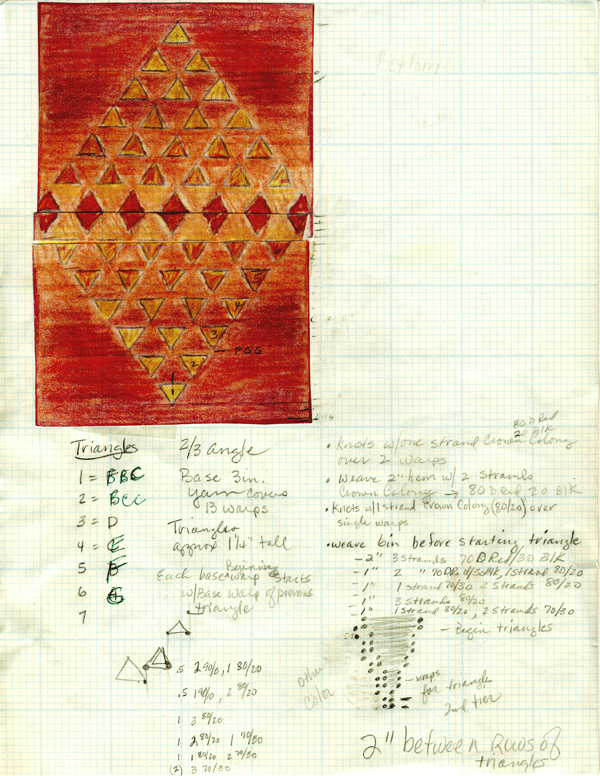 1
2
3
4
5
6
Triangles
1 = BBC
2 = BCC
3 = D
4 =
5
6
7
2/3 angle
Base 3 in.
Yarn covers
13 warps
Triangles
approx 1 1/4" tall
Beginning
Each base warp starts
w/Base warp of previous
triangle
.5 2 90/0, 1 80/20
.5 1 90/0, 2 80/20
1 3 80/20
1 2 80/20 1 70/30
1 1 80/20 2 70/30
(2) 3 70/30
80 D Red
20 Blk
• Knots w/one strand Crown Colony
over 2 warps
• Weave 2" hem w/ 2 strands
Crown Colony → 80 D Red, 20 Blk
• Knots w/1 strand Crown Colony (80/20) over
single warps
• weave 6in before starting triangle
- 2" 3 strands 70 D Red/30 Blk
- 1" 2 " 70 D Red/30 Blk, 1 strand 80/20
- 1" 1 strand 70/30 2 strands 80/20
- 1" 3 strands 80/20
- 1" 1 strand 80/20, 2 strands 70/30
- Begin triangles
other
color
- warps
for triangle
2nd tier
2" between Rows of
triangles